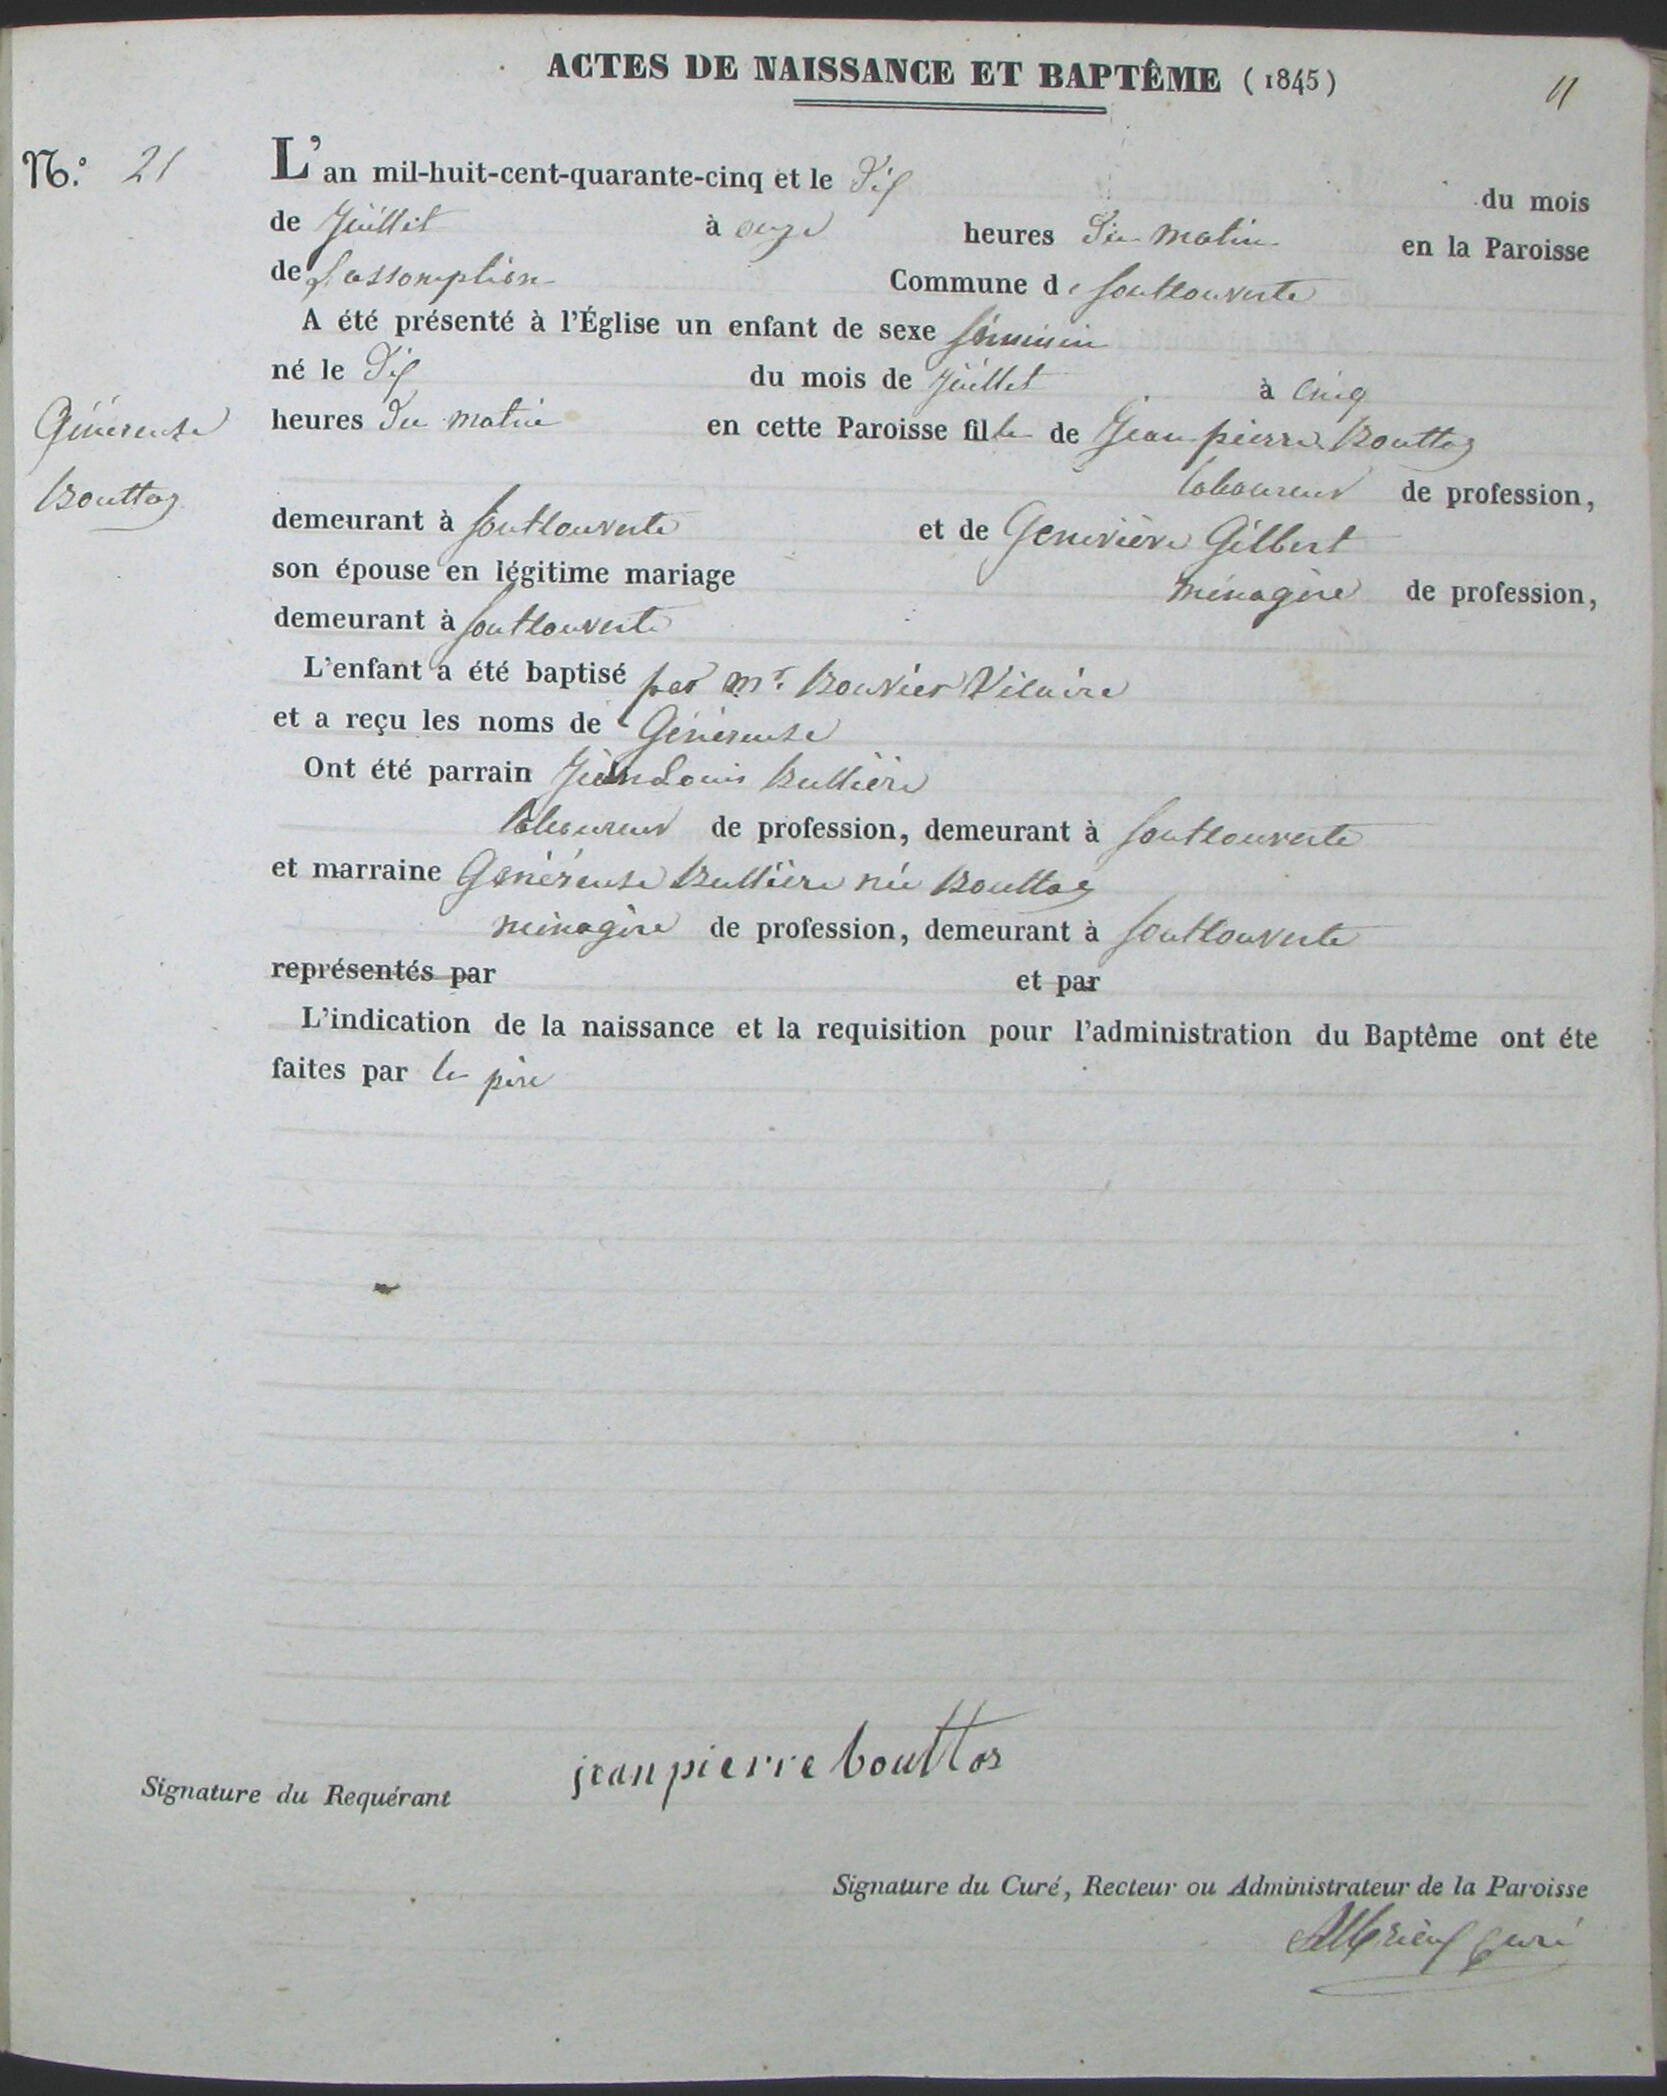 ACTES DE NAISSANCE ET BAPTÊME (1845)
11
N.° 21
L'an mil-huit-cent-quarante-cinq et le Dix du mois
de Juillet à onze heures du matin en la Paroisse
de L'assomption Commune de Fontcouverte
A été présenté à l'Église un enfant de sexe féminin
né le Dix du mois de Juillet à cinq
heures du matin en cette Paroisse fille de Jean pierre Bouttaz
Généreuse
Bouttaz
laboureur de profession,
demeurant à fontcouverte et de Geneviève Gilbert
son épouse en légitime mariage ménagère de profession,
demeurant à fontcouverte
L'enfant a été baptisé par Mr. Bouvier Vicaire
et a reçu les noms de Généreuse
Ont été parrain Jean Louis Bullière
laboureur de profession, demeurant à fontcouverte
et marraine Généreuse Bullière née Bouttaz
ménagère de profession, demeurant à fontcouverte
représentés par et par
L'indication de la naissance et la requisition pour l'administration du Baptême ont éte
faites par le père
Signature du Requérant jean pierre bouttaz
Signature du Curé, Recteur ou Administrateur de la Paroisse
curé